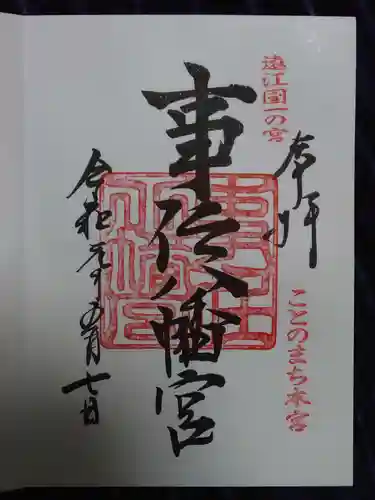 遠江國一の宮
奉拝
ことのまち本宮
事任八幡宮
令和元年五月七日